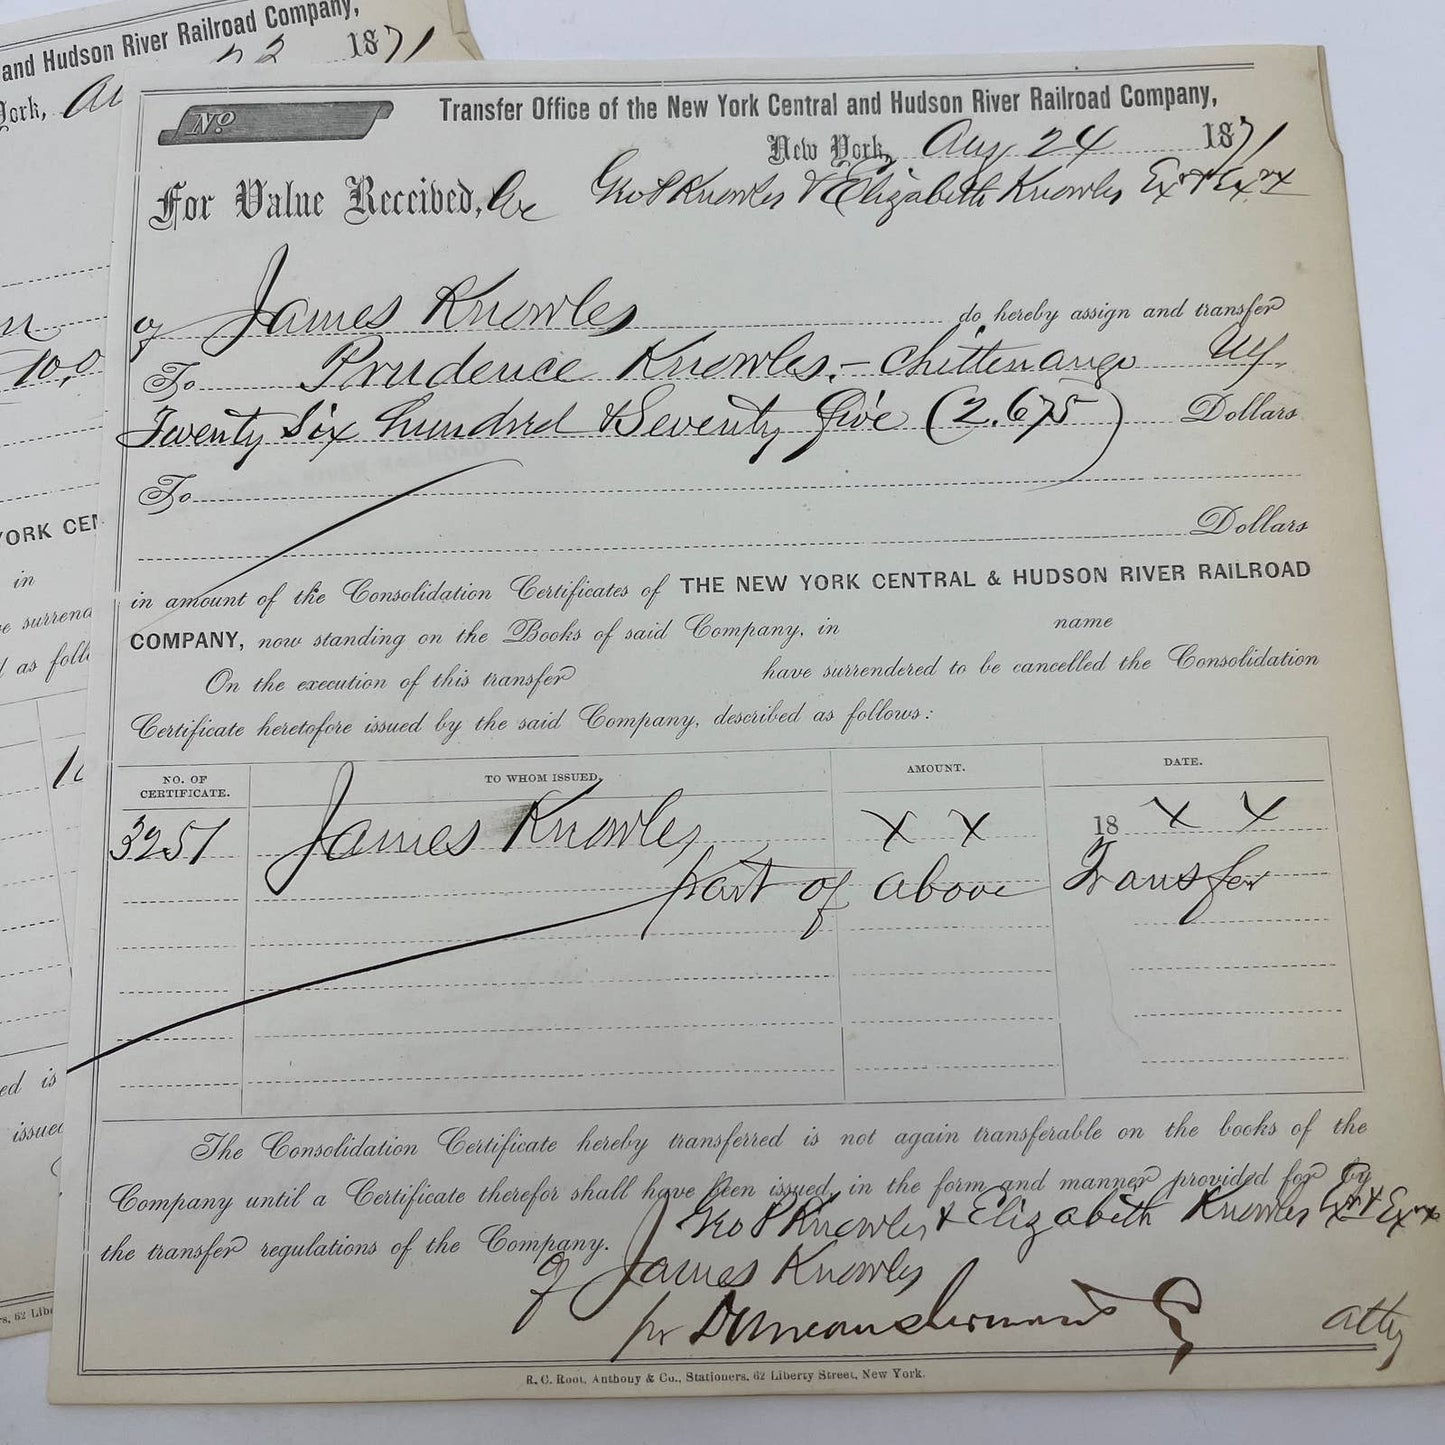 and Hudson River Railroad Company,
York, 22 1871
10,0
YORK CEN
in
e surrend
d as foll
ed is
issued
rs, 62 Libe
No
Transfer Office of the New York Central and Hudson River Railroad Company,
New York, Aug 24 1871
For Value Received, We Geo P Knowles & Elizabeth Knowles Exr & Exrx
of James Knowles do hereby assign and transfer
To Prudence Knowles. - Chittenango NY.
Twenty Six hundred & Seventy five (2.675) Dollars
To
Dollars
in amount of the Consolidation Certificates of THE NEW YORK CENTRAL & HUDSON RIVER RAILROAD
COMPANY, now standing on the Books of said Company, in name
On the execution of this transfer have surrendered to be cancelled the Consolidation
Certificate heretofore issued by the said Company, described as follows:
NO. OF CERTIFICATE. TO WHOM ISSUED. AMOUNT. DATE.
3251 James Knowles X X 18 X X
part of above Transfer
The Consolidation Certificate hereby transferred is not again transferable on the books of the
Company until a Certificate therefor shall have been issued, in the form and manner provided for by
the transfer regulations of the Company.
Geo P Knowles & Elizabeth Knowles Exr & Exrx
of James Knowles
pr Duncan Sherman & Co atty
R. C. Root, Anthony & Co., Stationers, 62 Liberty Street, New York.